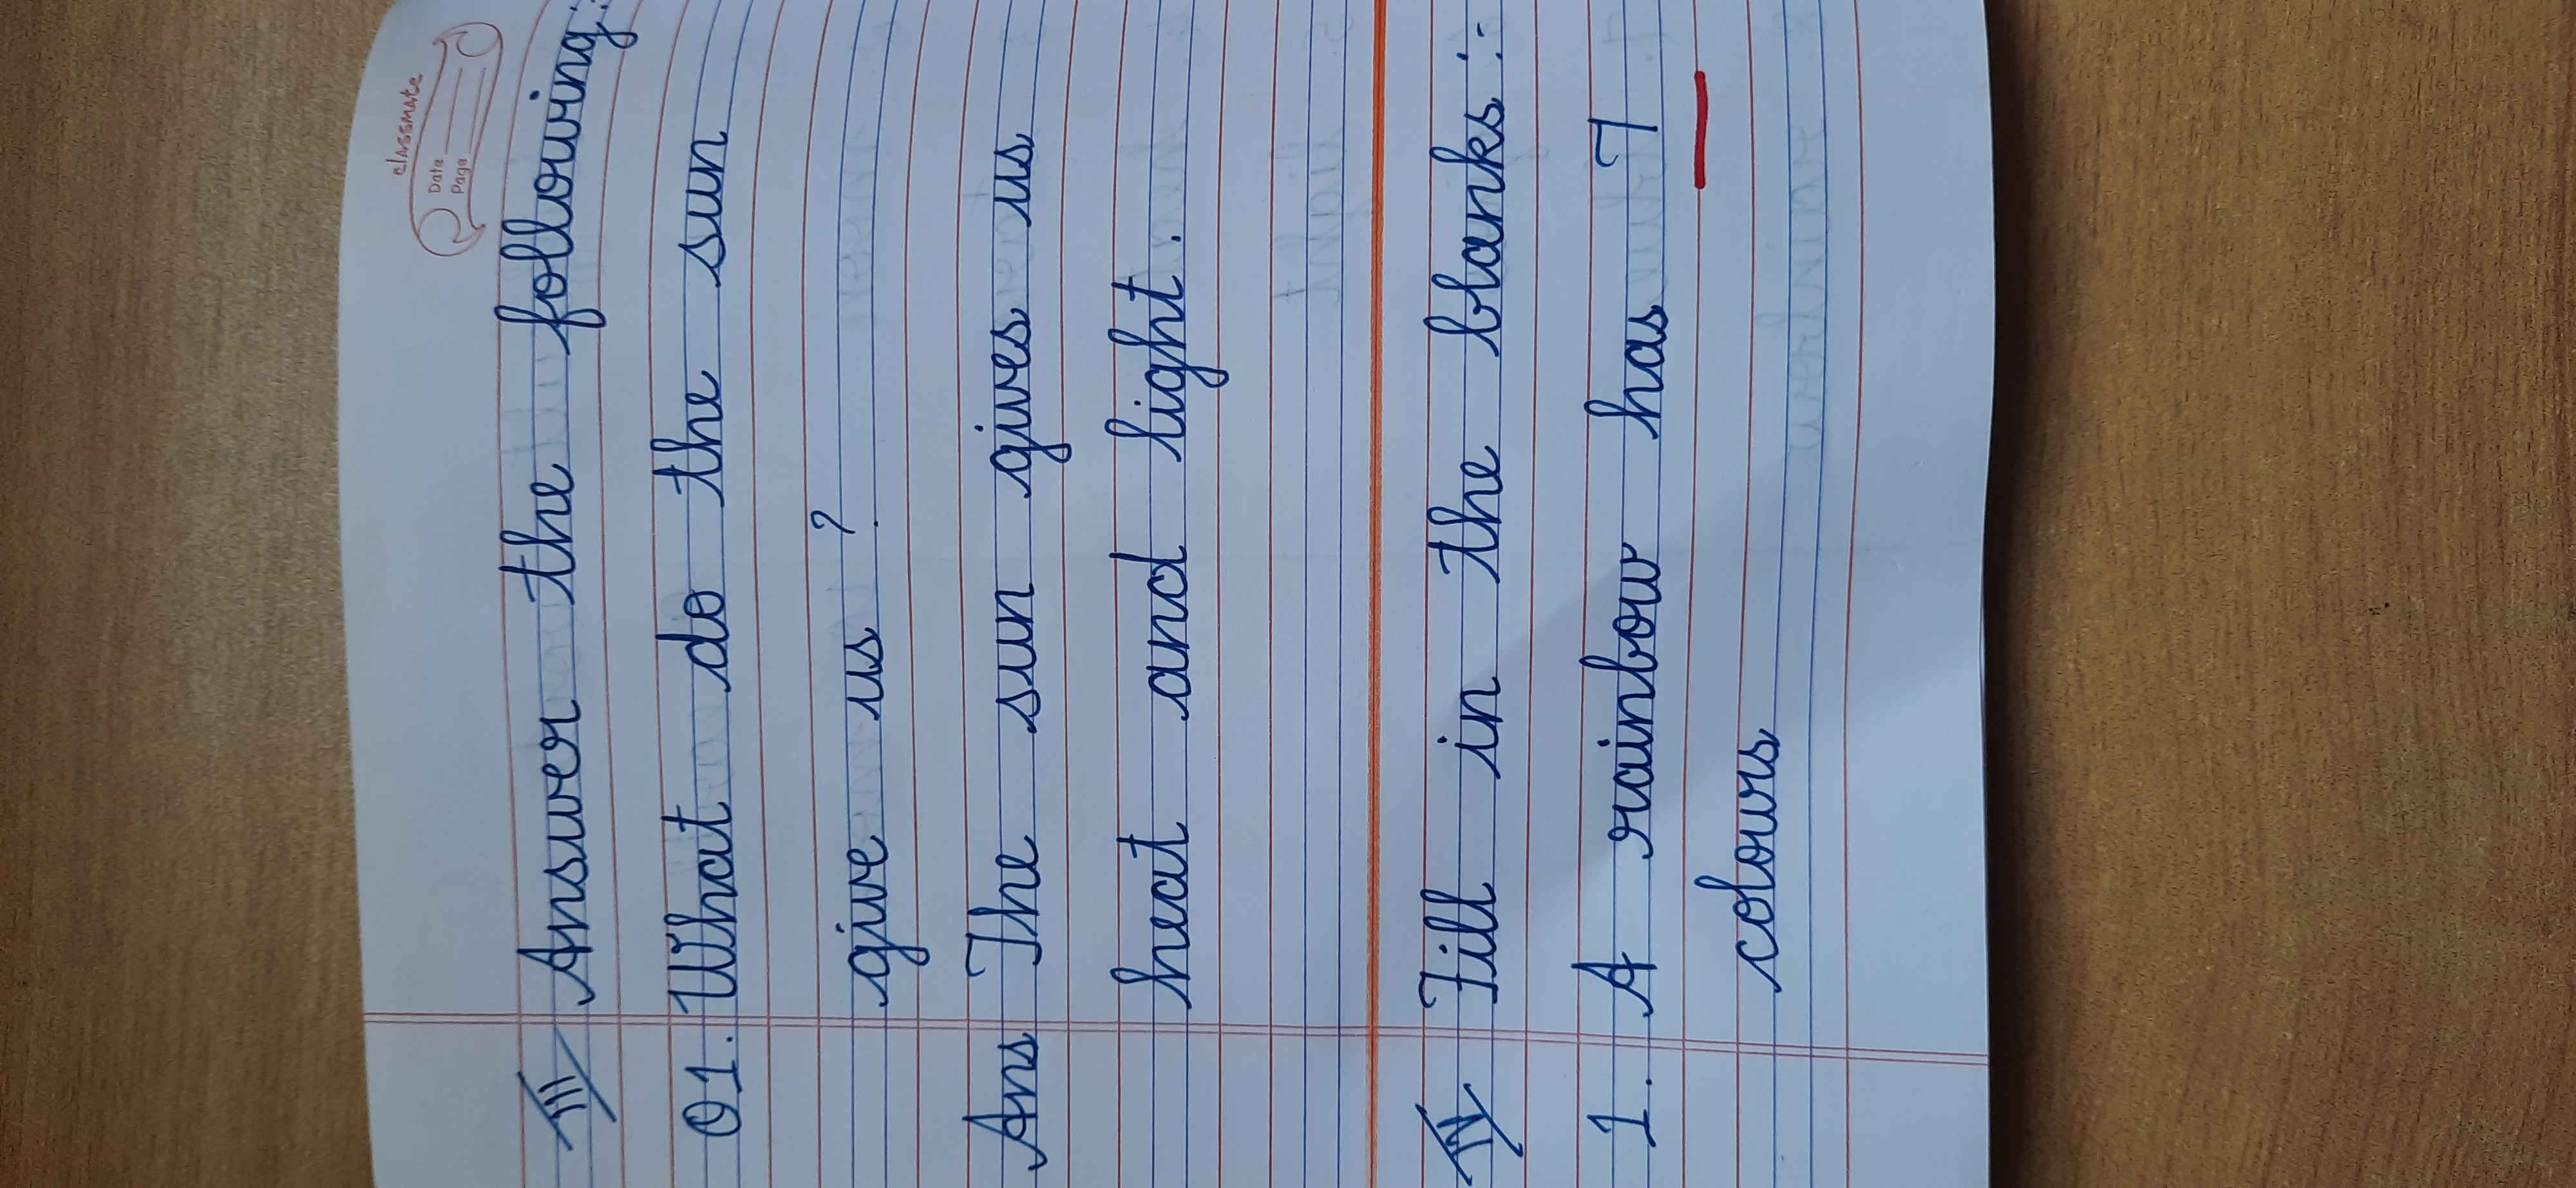 classmate
Date
Page
III Answer the following:
Q1. What do the sun
give us ?
Ans The sun gives us
heat and light.
IV Fill in the blanks :-
1. A rainbow has 7
colours